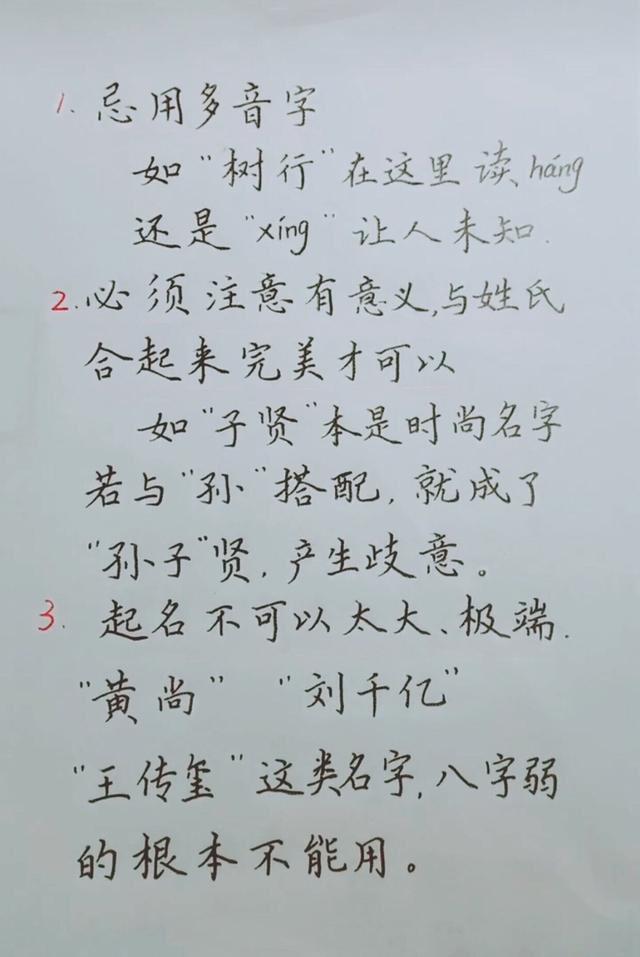 1. 忌用多音字
如“树行”在这里读háng
还是“xíng”让人未知.
2. 必须注意有意义,与姓氏
合起来完美才可以
如“子贤”本是时尚名字
若与“孙”搭配,就成了
“孙子”贤,产生歧意。
3. 起名不可以太大、极端.
“黄尚” “刘千亿”
“王传玺”这类名字,八字弱
的根本不能用。